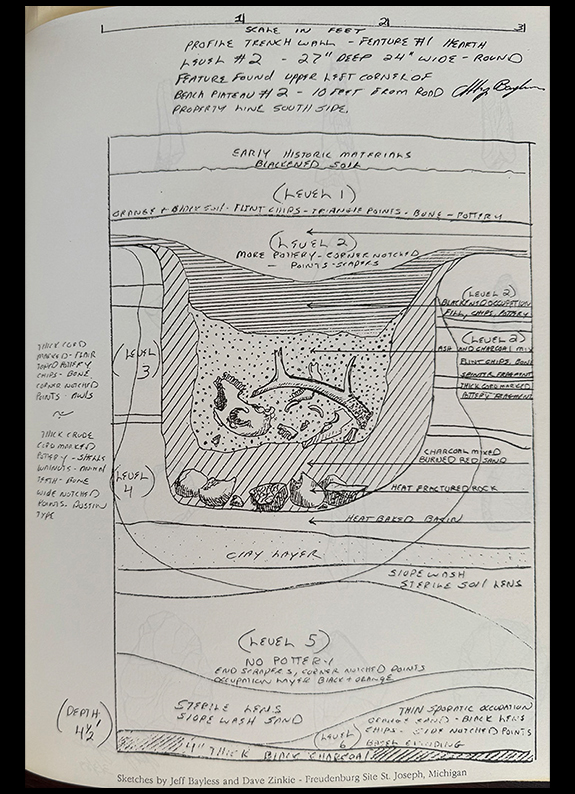 1 2 3
SCALE IN FEET
PROFILE TRENCH WALL - FEATURE #1 HEARTH
LEVEL #2 - 27" DEEP 24" WIDE - ROUND
FEATURE FOUND UPPER LEFT CORNER OF
BENCH PLATEAU #2 - 10 FEET FROM ROAD
PROPERTY LINE SOUTH SIDE.
EARLY HISTORIC MATERIALS
BLACKENED SOIL
(LEVEL 1)
ORANGE + BLACK SOIL - FLINT CHIPS - TRIANGLE POINTS - BONE - POTTERY
(LEVEL 2)
MORE POTTERY - CORNER NOTCHED
- POINTS - SCRAPERS
(LEVEL 2)
BLACKENED OCCUPATION
FILL, CHIPS, POTTERY
(LEVEL 2)
ASH AND CHARCOAL MIX
FLINT CHIPS BONE
THICK CORD MARKED
POTTERY FRAGMENT
THICK CORD
MARKED - FLAIR
POTTERY
CHIPS - BONE
CORNER NOTCHED
POINTS AWLS
(LEVEL 3)
THICK CRUDE
CORD MARKED
POTTERY - SHELLS
WALNUTS - ANIMAL
TEETH - BONE
WIDE NOTCHED
POINTS. DUSTIN
TYPE
(LEVEL 4)
CHARCOAL MIXED
BURNED RED SAND
HEAT FRACTURED ROCK
HEAT BAKED BASIN
CLAY LAYER
SLOPE WASH
STERILE SOIL LENS
(LEVEL 5)
NO POTTERY
END SCRAPERS, CORNER NOTCHED POINTS
OCCUPATION LAYER BLACK + ORANGE
STERILE LENS
SLOPE WASH SAND
THIN SPORATIC OCCUPATION
ORANGE SAND - BLACK LENS
CHIPS - SIDE NOTCHED POINTS
BASEL GRINDING
(LEVEL 6)
(DEPTH 4½')
4" THICK BLACK CHARCOAL
Sketches by Jeff Bayless and Dave Zinkie - Freudenburg Site St. Joseph, Michigan